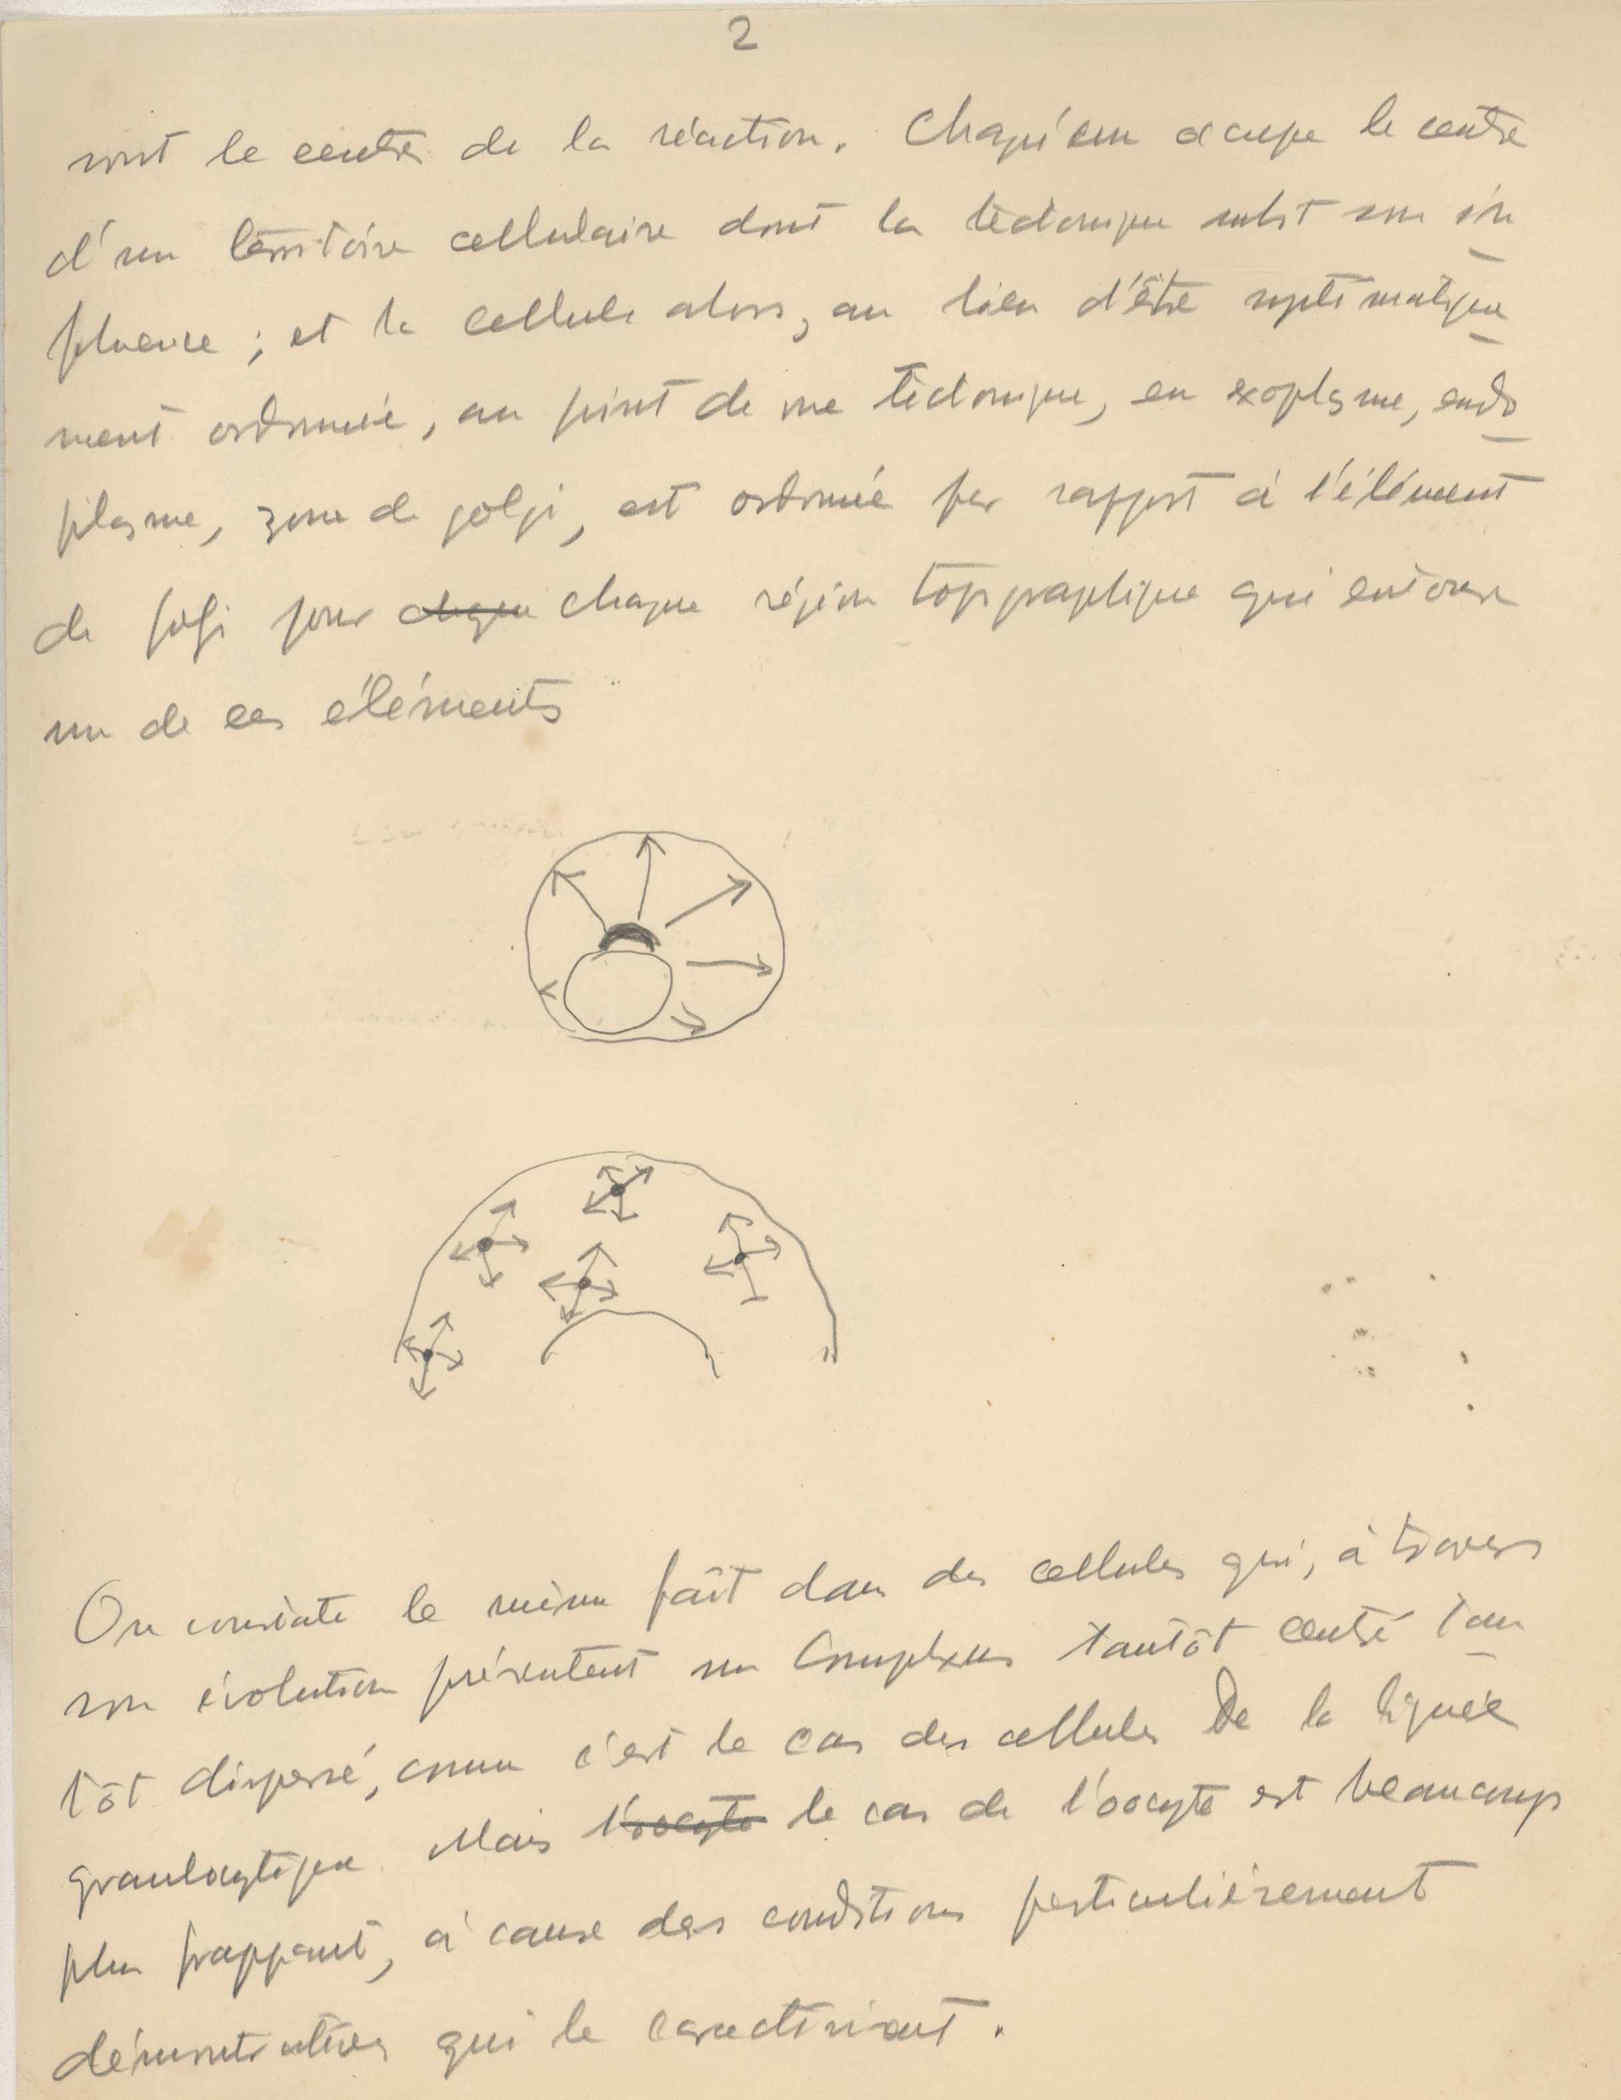 2
sont le centre de la réaction. Chaqu'un occupe le centre
d'un térritoire cellulaire dont la tèctonique subit son in
fluence ; et la cellule alors, au lieu d'être systématique
ment ordonnée, au point de vue tèctonique, en exoplasme, endo
plasme, zone de golgi, est ordonnée par rapport à l'élément
de golgi pour chaque chaque région topographique qui entoure
un de ces éléments
On constate le même fait dans des cellules qui, à travers
son évolution présentent un Complexus tantôt centré tan
tôt dispersé, comme c'est le cas des cellules De la lignée
granulocytique. Mais l'oocyte le cas de l'oocyte est beaucoup
plus frappant, à cause des conditions particulièrement
démonstratives qui le caractérisent.